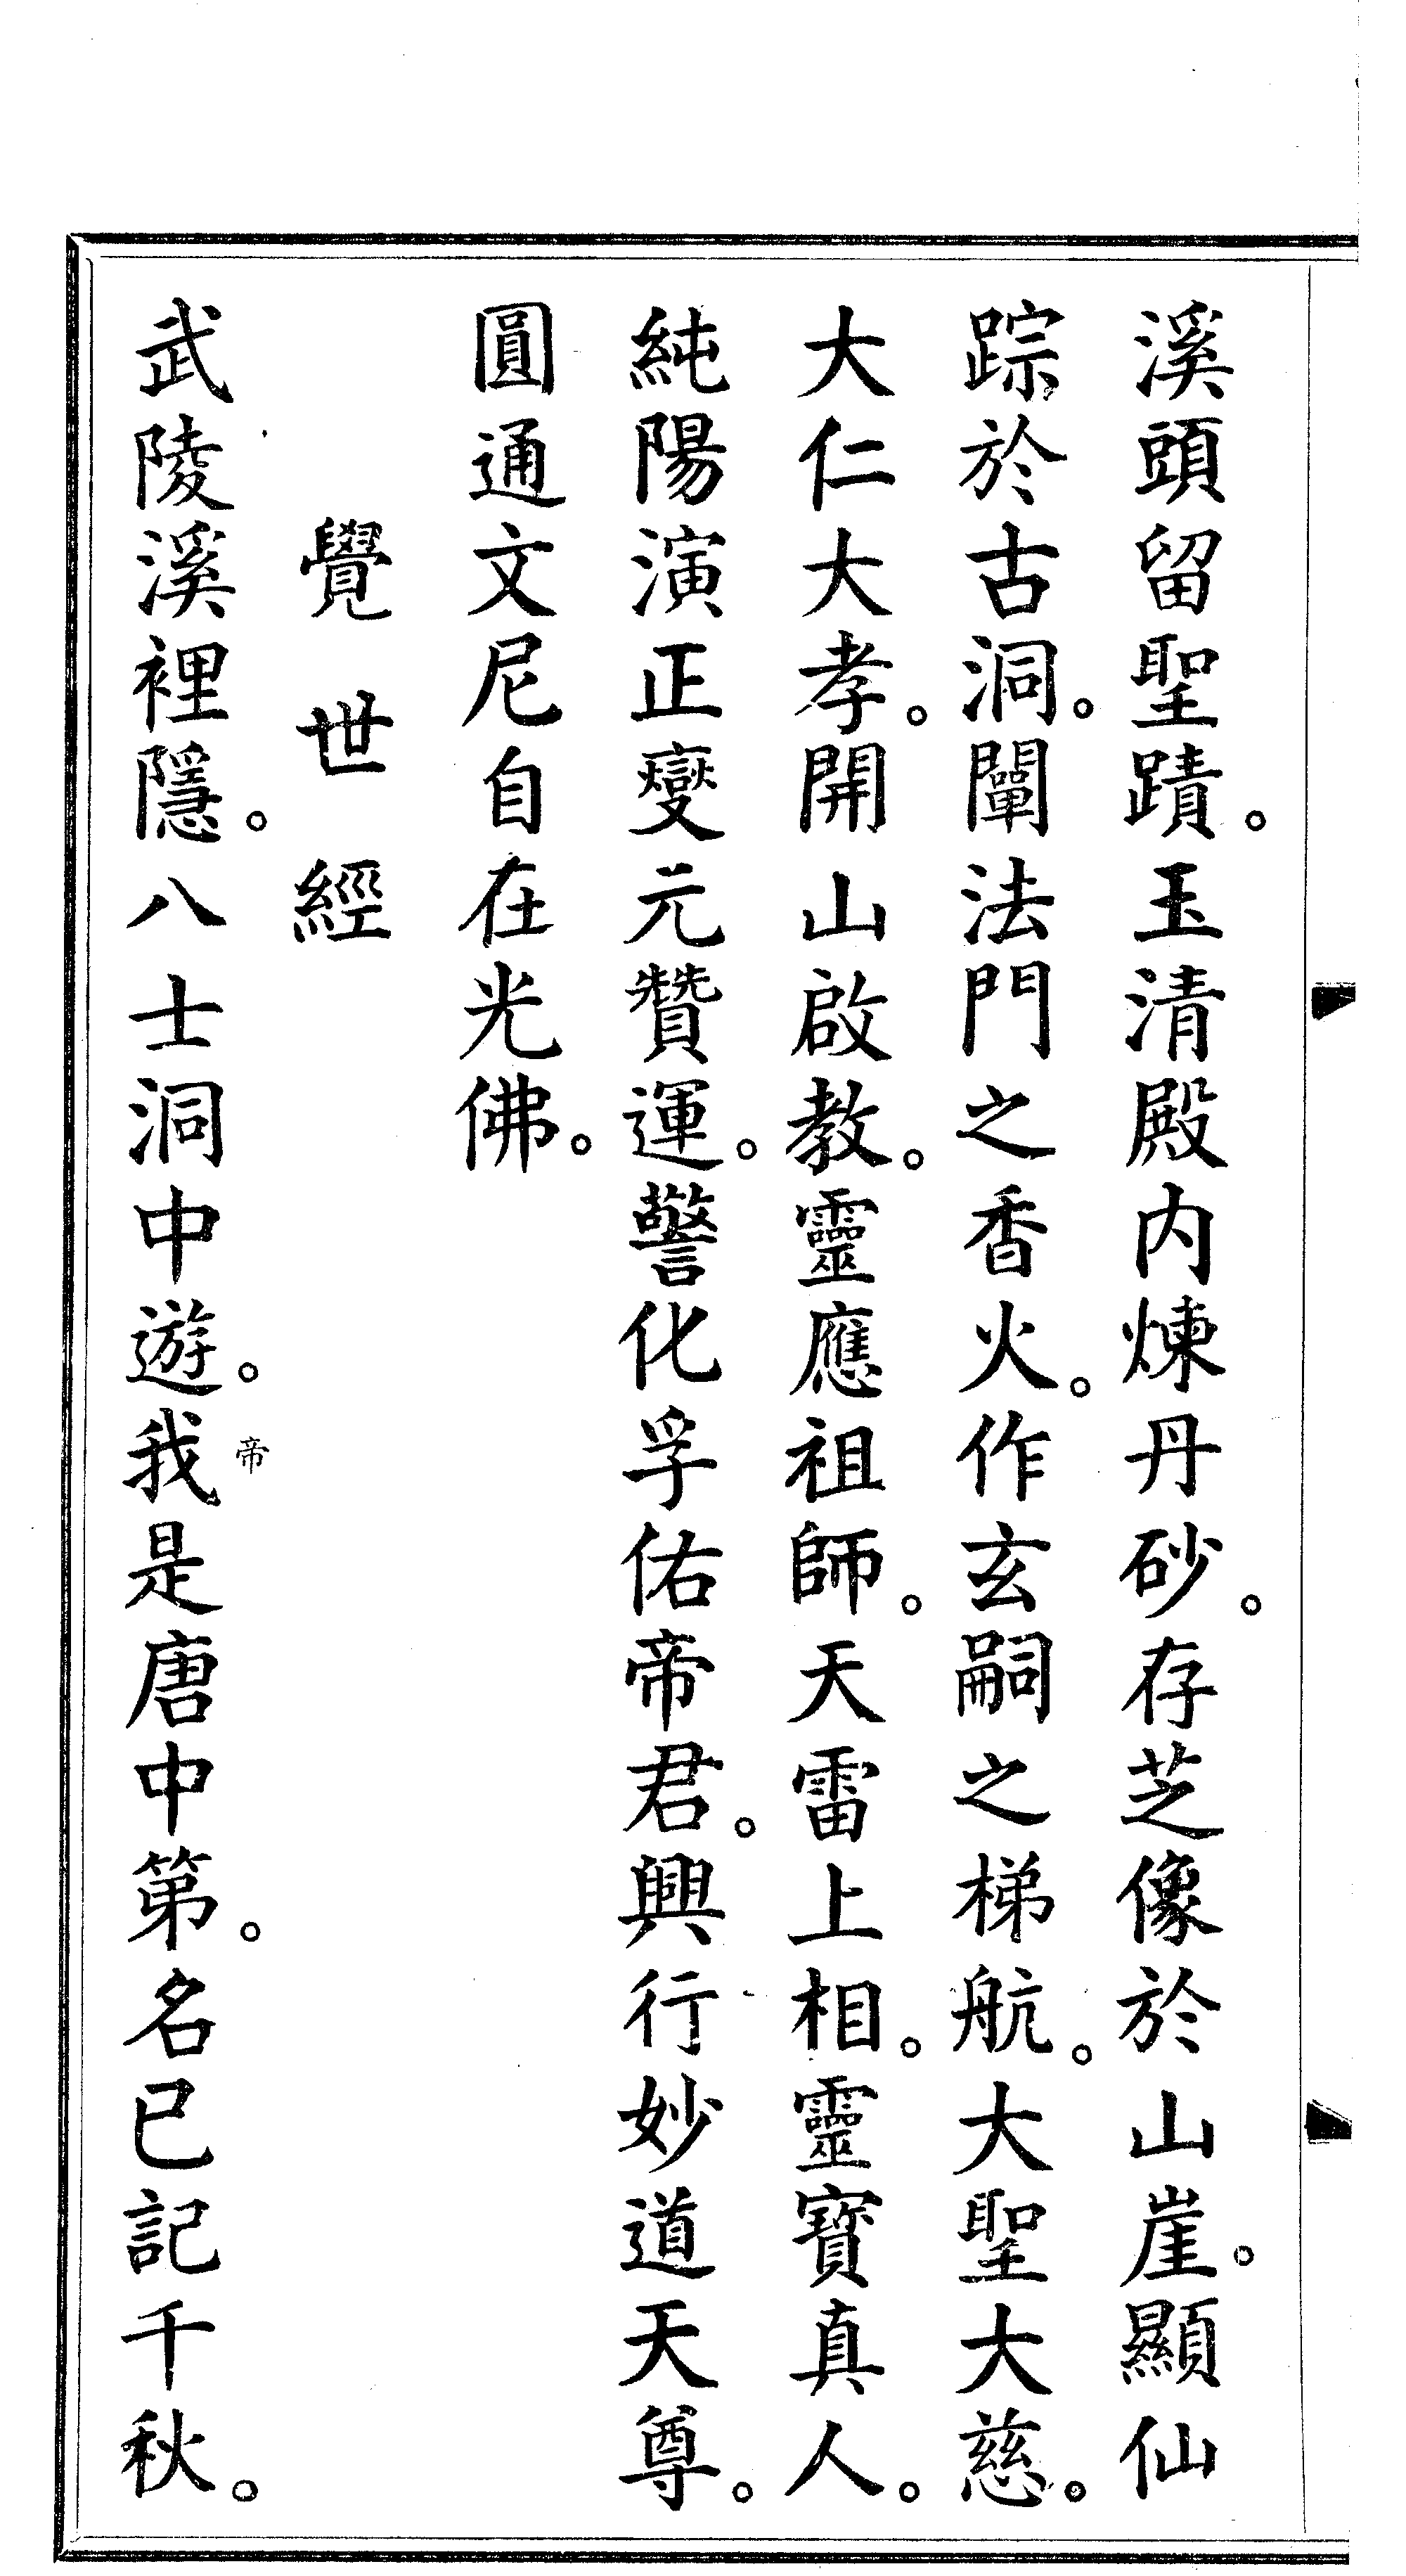 溪頭留聖蹟。玉清殿内煉丹砂。存芝像於山崖。顯仙
踪於古洞。闡法門之香火。作玄嗣之梯航。大聖大慈。
大仁大孝。開山啟教。靈應祖師。天雷上相。靈寶真人。
純陽演正變元贊運。警化孚佑帝君。興行妙道天尊。
圓通文尼自在光佛。
覺世經
武陵溪裡隱。八士洞中遊。帝我是唐中第。名已記千秋。